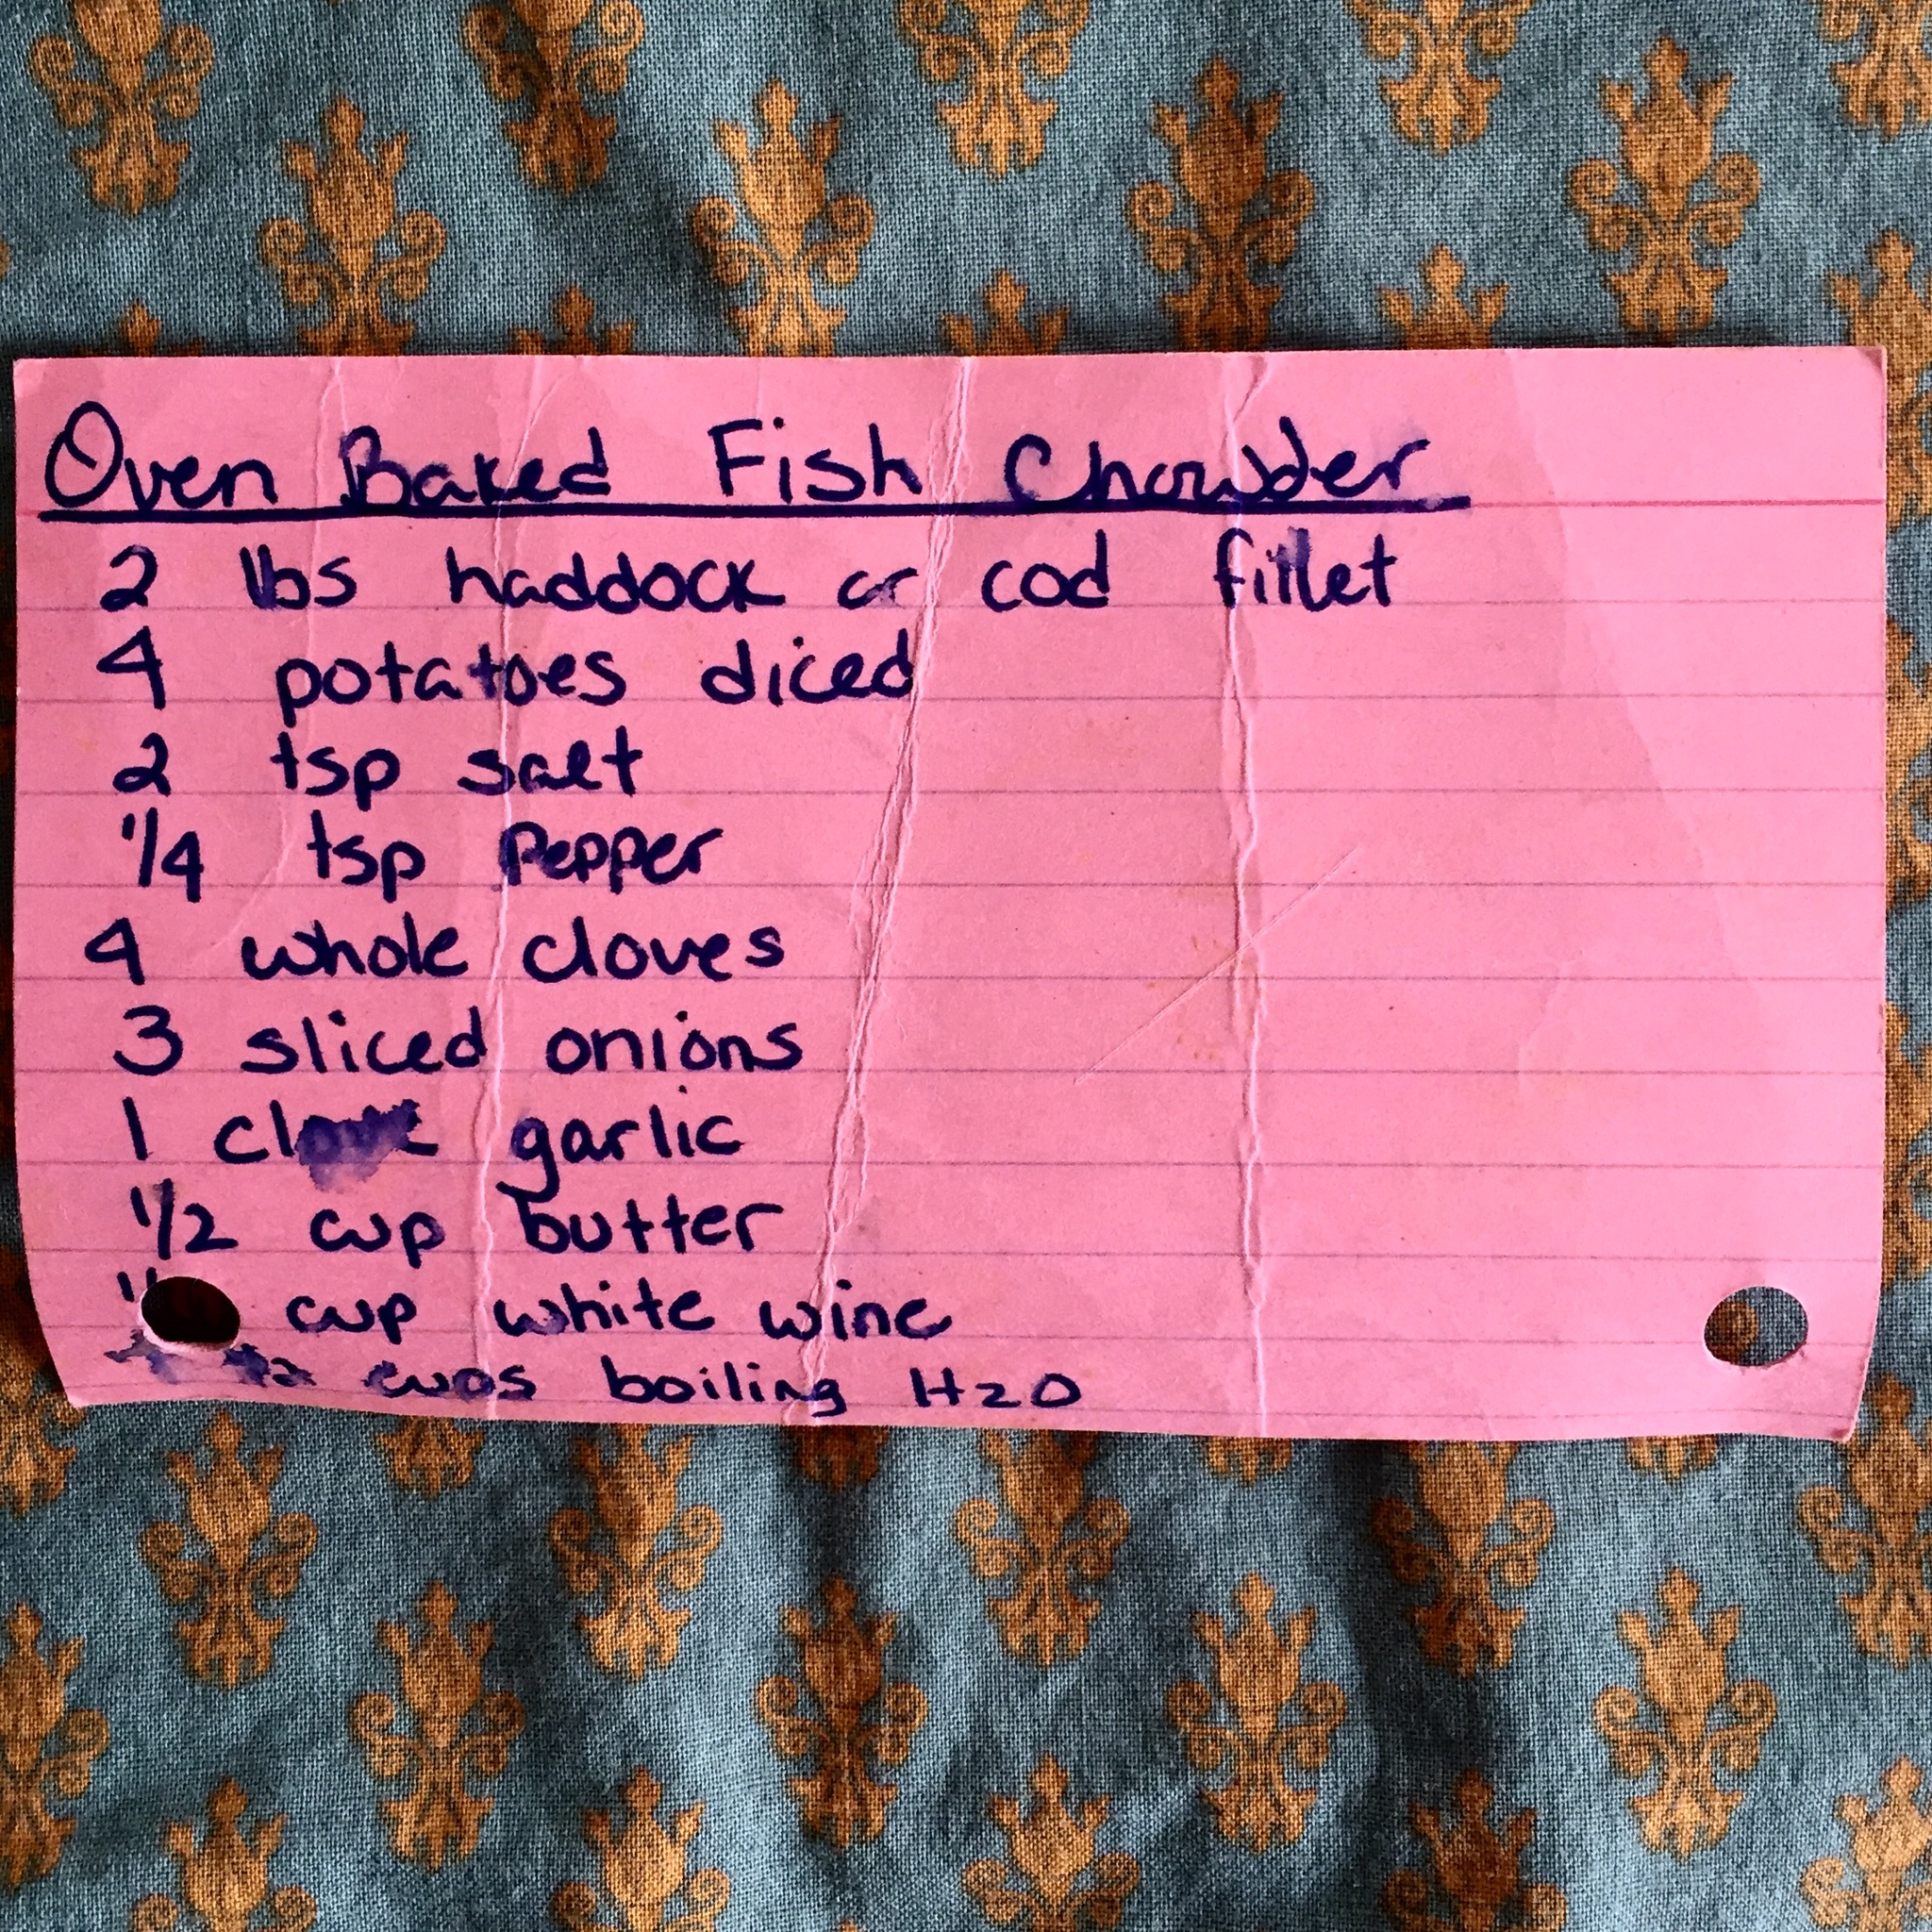 Oven Baked Fish Chowder
2 lbs haddock or cod fillet
4 potatoes diced
2 tsp salt
1/4 tsp Pepper
4 whole cloves
3 sliced onions
1 clove garlic
1/2 cup butter
cup white wine
cups boiling H2O